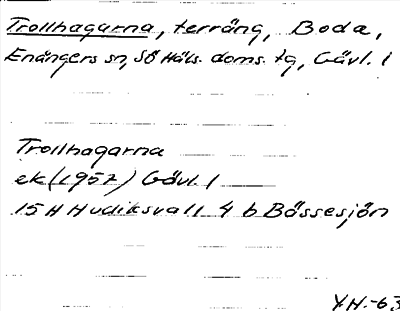 Trollhagarna, terräng, Boda,
Enångers sn, SÖ Häls. doms. tg, Gävl. l
Trollhagarna
ek (1957) Gävl. l
15 H Hudiksvall 4 b Bässesjön
Y.H.-63